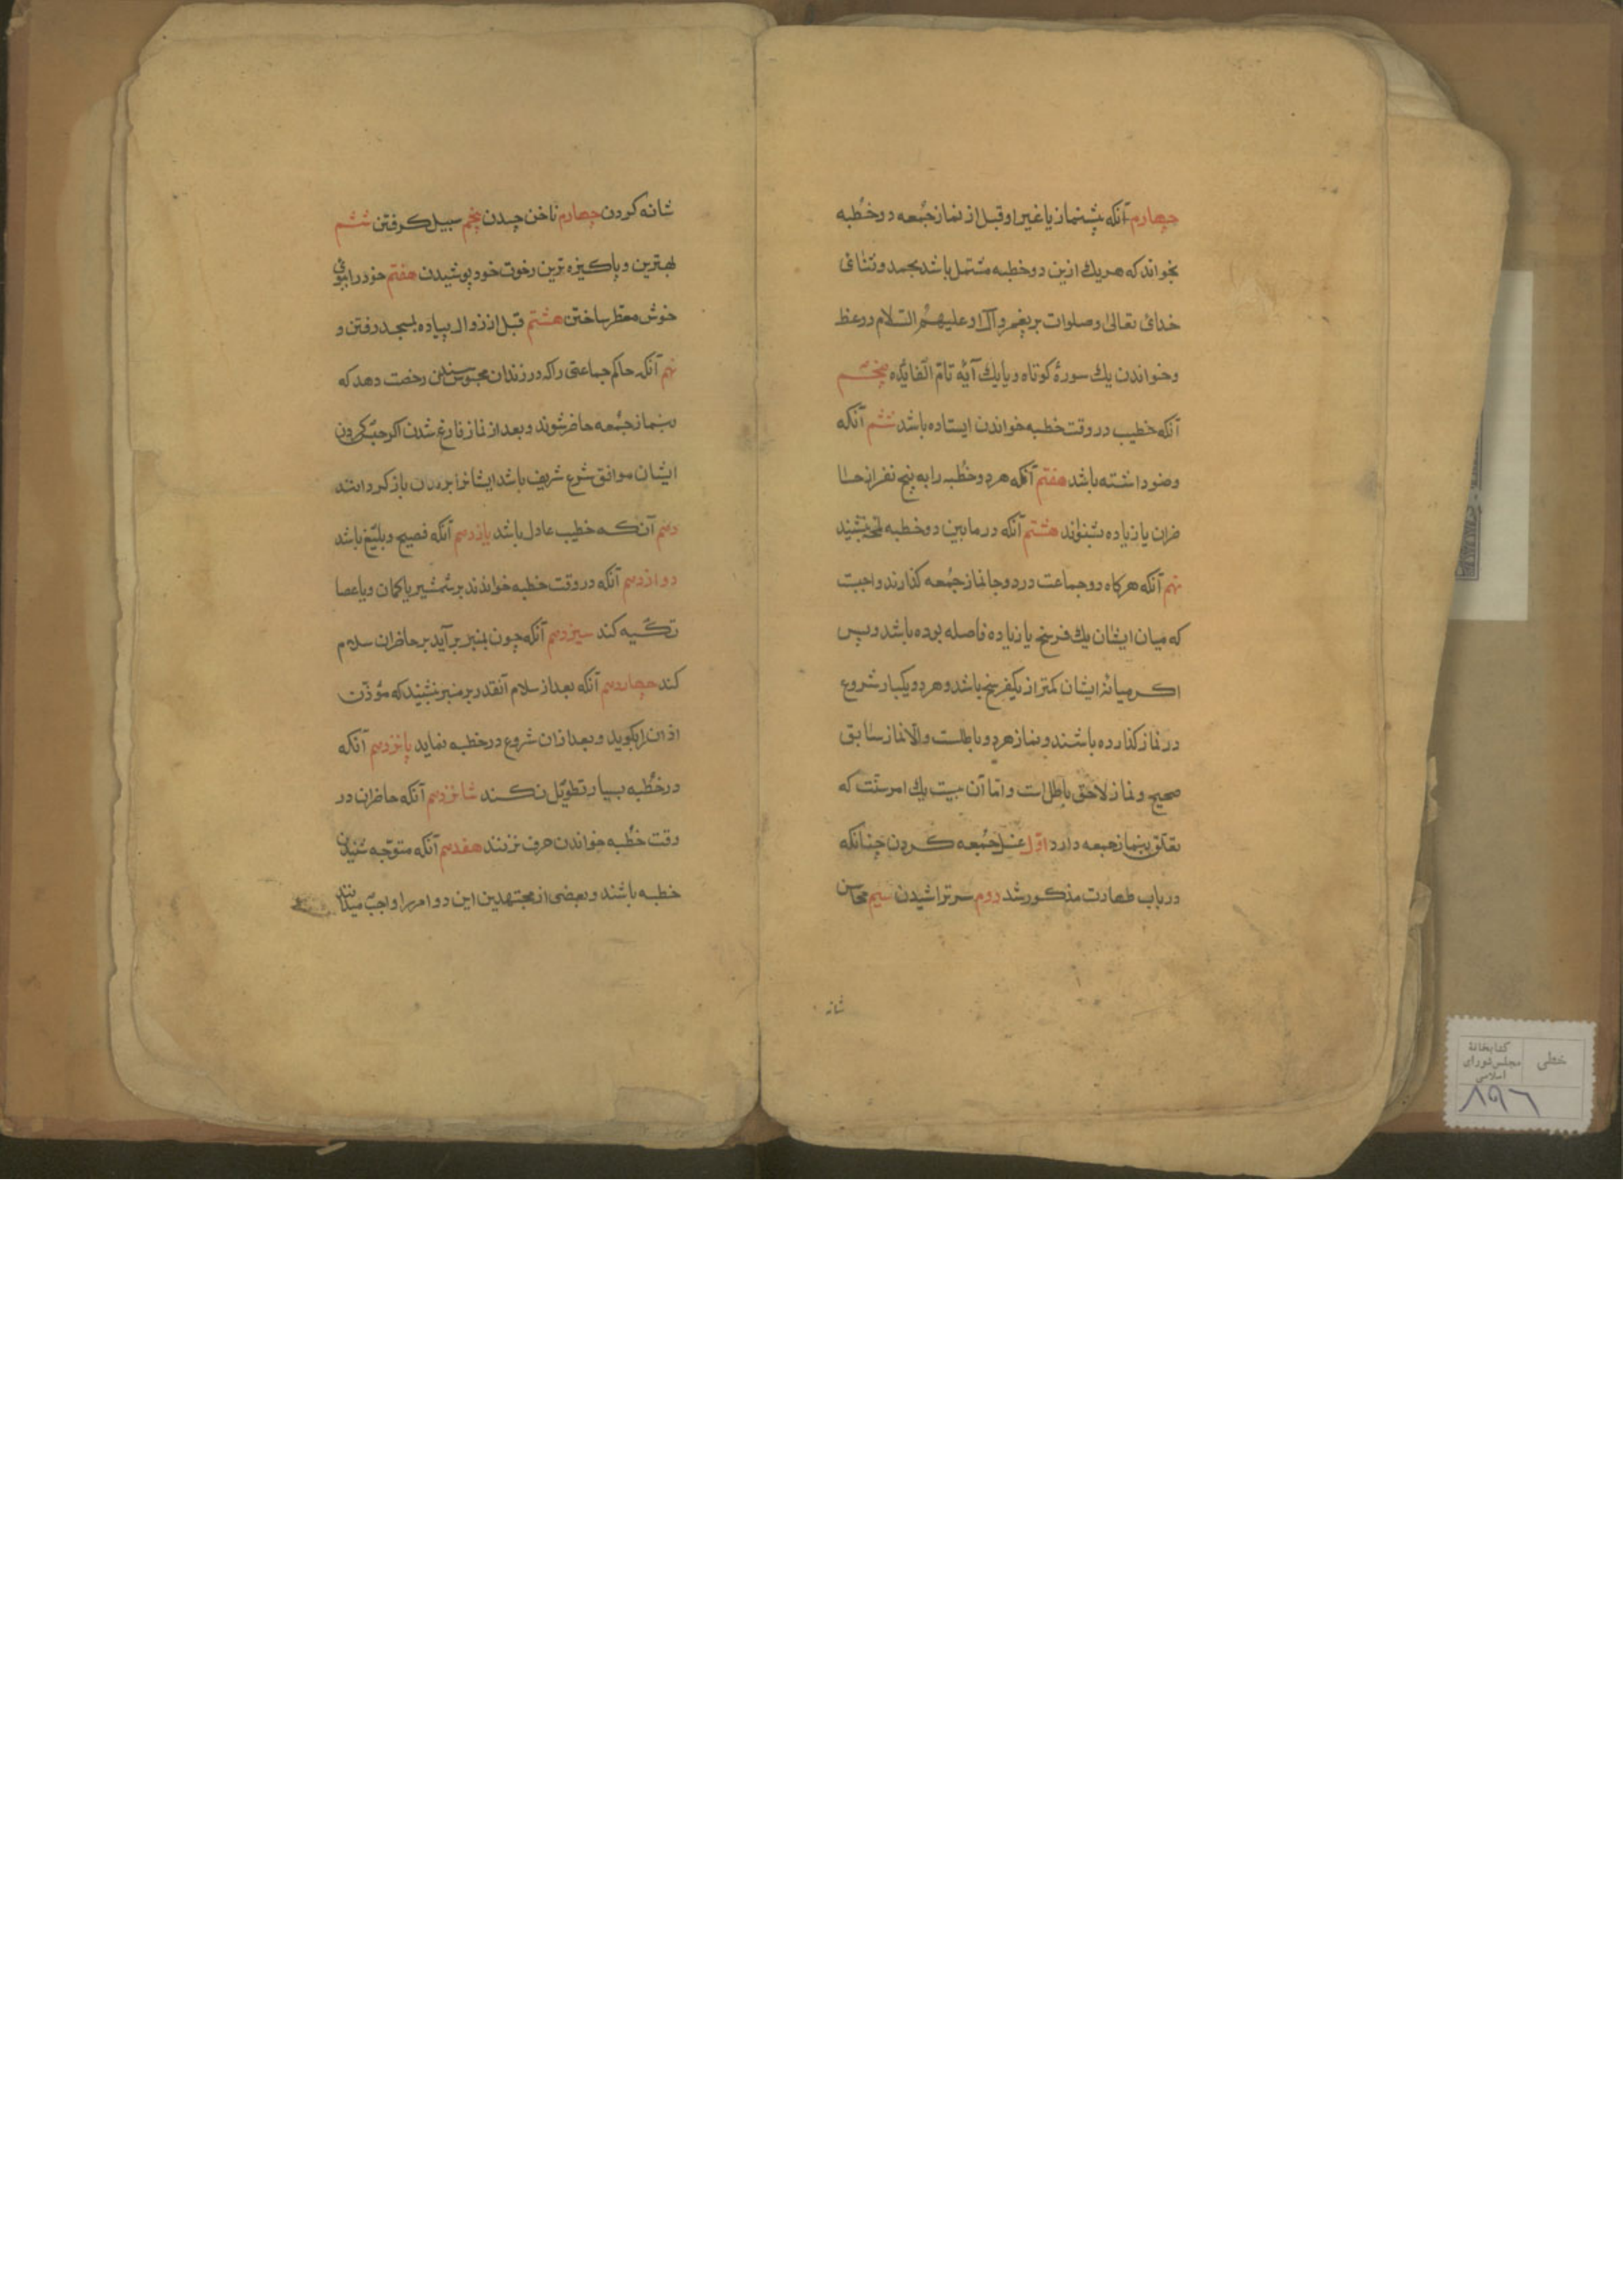 چهارم آنکه پیشنماز یا غیر او قبل از نماز جمعه دو خطبه
بخواند که هر یک ازین دو خطبه مشتمل باشد بحمد و ثنای
خدای تعالی و صلوات بر پیغمبر و آل او علیهم السلام و وعظ
و خواندن یک سورهٔ کوتاه و یا یک آیهٔ تام الفایده پنجم
آنکه خطیب در وقت خطبه خواندن ایستاده باشد ششم آنکه
وضو داشته باشد هفتم آنکه هر دو خطبه را به پنج نفر از حا
ضران یا زیاده بشنواند هشتم آنکه در مابین دو خطبه بنشیند
نهم آنکه هرگاه دو جماعت در دو جا نماز جمعه گذارند واجبست
که میان ایشان یک فرسخ یا زیاده فاصله بوده باشد و پس
اگر میانهٔ ایشان کمتر از یکفرسخ باشد و هر دو یکبار شروع
در نماز کذارده باشند و نماز هر دو باطلست والا نماز سابق
صحیح و نماز لاحق باطل است و اما آن بیست یک امر سنت که
تعلق بنماز جمعه دارد اول غسل جمعه کردن چنانکه
در باب طهارت مذکور شد دوم سر تراشیدن سیم محاسن
شانه
شانه کردن چهارم ناخن چیدن پنجم سبیل گرفتن ششم
بهترین و پاکیزه ترین رخوت خود پوشیدن هفتم خود را ببوی
خوش معطر ساختن هشتم قبل از زوال پیاده بمسجد رفتن و
نهم آنکه حاکم جماعتی را که در زندان محبوسند رخصت دهد که
بنماز جمعه حاضر شوند و بعد از نماز فارغ شدن اگر حبس کردن
ایشان موافق شرع شریف باشد ایشانرا بزندان باز گردانند
دهم آنکه خطیب عادل باشد یازدهم آنکه فصیح و بلیغ باشد
دوازدهم آنکه در وقت خطبه خواندند بر شمشیر یا کمان و یا عصا
تکیه کند سیزدهم آنکه چون بمنبر برآید بر حاضران سلام
کند چهاردهم آنکه بعد از سلام آنقدر بر منبر نشیند که مؤذن
اذان را بگوید و بعد از ان شروع در خطبه نماید پانزدهم آنکه
در خطبه بسیار تطویل نکند شانزدهم آنکه حاضران در
وقت خطبه خواندن حرف نزنند هفدهم آنکه متوجه شنیدن
خطبه باشند و بعضی از مجتهدین این دو امر را واجب میدانند
خطی
کتابخانهٔ
مجلس شورای
اسلامی
۸۹۶